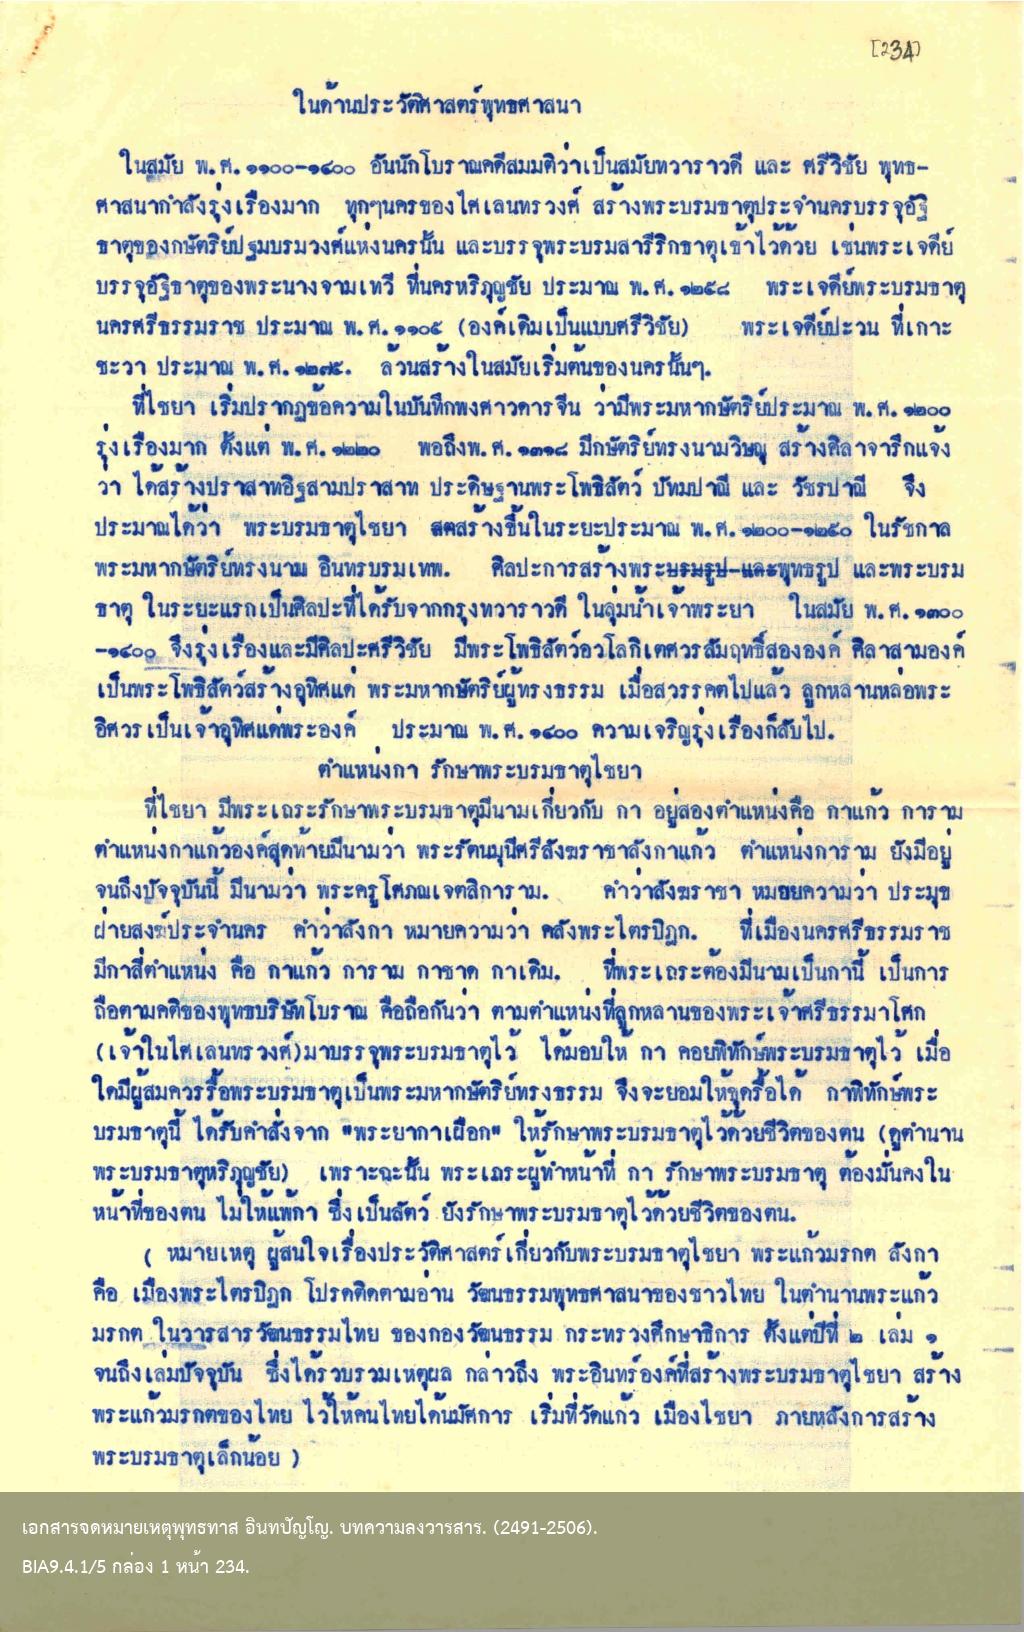 [234]
ในด้านประวัติศาสตร์พุทธศาสนา
ในสมัย พ.ศ.๑๑๐๐-๑๔๐๐ อันนักโบราณคดีสมมติว่าเป็นสมัยทวาราวดี และ ศรีวิชัย พุทธ-
ศาสนากำลังรุ่งเรืองมาก ทุกๆนครของไศเลนทรวงศ์ สร้างพระบรมธาตุประจำนครบรรจุอัฐิ
ธาตุของกษัตริย์ปฐมบรมวงศ์แห่งนครนั้น และบรรจุพระบรมสารีริกธาตุเข้าไว้ด้วย เช่นพระเจดีย์
บรรจุอัฐิธาตุของพระนางจามเทวี ที่นครหริภุญชัย ประมาณ พ.ศ.๑๒๕๘ พระเจดีย์พระบรมธาตุ
นครศรีธรรมราช ประมาณ พ.ศ.๑๑๐๕ (องค์เดิมเป็นแบบศรีวิชัย) พระเจดีย์ปะวน ที่เกาะ
ชะวา ประมาณ พ.ศ.๑๒๗๕. ล้วนสร้างในสมัยเริ่มต้นของนครนั้นๆ.
ที่ไชยา เริ่มปรากฏข้อความในบันทึกพงศาวดารจีน ว่ามีพระมหากษัตริย์ประมาณ พ.ศ.๑๒๐๐
รุ่งเรืองมาก ตั้งแต่ พ.ศ.๑๒๒๐ พอถึงพ.ศ.๑๓๑๘ มีกษัตริย์ทรงนามวิษณุ สร้างศิลาจารึกแจ้ง
วา ได้สร้างปราสาทอิฐสามปราสาท ประดิษฐานพระโพธิสัตว์ ปัทมปาณี และ วัชรปาณี จึง
ประมาณได้ว่า พระบรมธาตุไชยา สร้างขึ้นในระยะประมาณ พ.ศ.๑๒๐๐-๑๒๕๐ ในรัชกาล
พระมหากษัตริย์ทรงนาม อินทรบรมเทพ. ศิลปะการสร้างพระบรมรูป และพุทธรูป และพระบรม
ธาตุ ในระยะแรกเป็นศิลปะที่ได้รับจากกรุงทวาราวดี ในลุ่มน้ำเจ้าพระยา ในสมัย พ.ศ.๑๓๐๐
-๑๔๐๐ จึงรุ่งเรืองและมีศิลปะศรีวิชัย มีพระโพธิสัตว์อวโลกิเตศวรสัมฤทธิ์สององค์ ศิลาสามองค์
เป็นพระโพธิสัตว์สร้างอุทิศแด่ พระมหากษัตริย์ผู้ทรงธรรม เมื่อสวรรคตไปแล้ว ลูกหลานหล่อพระ
อิศวรเป็นเจ้าอุทิศแด่พระองค์ ประมาณ พ.ศ.๑๔๐๐ ความเจริญรุ่งเรืองก็ลับไป.
ตำแหน่งกา รักษาพระบรมธาตุไชยา
ที่ไชยา มีพระเถระรักษาพระบรมธาตุมีนามเกี่ยวกับ กา อยู่สองตำแหน่งคือ กาแก้ว การาม
ตำแหน่งกาแก้วองค์สุดท้ายมีนามว่า พระรัตนมุนีศรีสังฆราชาลังกาแก้ว ตำแหน่งการาม ยังมีอยู่
จนถึงปัจจุบันนี้ มีนามว่า พระครูโศภณเจตสิการาม. คำว่าสังฆราชา หมายความว่า ประมุข
ฝ่ายสงฆ์ประจำนคร คำว่าลังกา หมายความว่า คลังพระไตรปิฎก. ที่เมืองนครศรีธรรมราช
มีกาสี่ตำแหน่ง คือ กาแก้ว การาม กาชาด กาเดิม. ที่พระเถระต้องมีนามเป็นกานี้ เป็นการ
ถือตามคติของพุทธบริษัทโบราณ คือถือกันว่า ตามตำแหน่งที่ลูกหลานของพระเจ้าศรีธรรมาโศก
(เจ้าในไศเลนทรวงศ์)มาบรรจุพระบรมธาตุไว้ ได้มอบให้ กา คอยพิทักษ์พระบรมธาตุไว้ เมื่อ
ใดมีผู้สมควรรื้อพระบรมธาตุเป็นพระมหากษัตริย์ทรงธรรม จึงจะยอมให้ขุดรื้อได้ กาพิทักษ์พระ
บรมธาตุนี้ ได้รับคำสั่งจาก "พระยากาเผือก" ให้รักษาพระบรมธาตุไว้ด้วยชีวิตของตน (ดูตำนาน
พระบรมธาตุหริภุญชัย) เพราะฉะนั้น พระเถระผู้ทำหน้าที่ กา รักษาพระบรมธาตุ ต้องมั่นคงใน
หน้าที่ของตน ไม่ให้แพ้กา ซึ่งเป็นสัตว์ ยังรักษาพระบรมธาตุไว้ด้วยชีวิตของตน.
( หมายเหตุ ผู้สนใจเรื่องประวัติศาสตร์เกี่ยวกับพระบรมธาตุไชยา พระแก้วมรกต ลังกา
คือ เมืองพระไตรปิฎก โปรดติดตามอ่าน วัฒนธรรมพุทธศาสนาของชาวไทย ในตำนานพระแก้ว
มรกต ในวารสารวัฒนธรรมไทย ของกองวัฒนธรรม กระทรวงศึกษาธิการ ตั้งแต่ปีที่ ๒ เล่ม ๑
จนถึงเล่มปัจจุบัน ซึ่งได้รวบรวมเหตุผล กล่าวถึง พระอินทร์องค์ที่สร้างพระบรมธาตุไชยา สร้าง
พระแก้วมรกตของไทย ไว้ให้คนไทยได้นมัศการ เริ่มที่วัดแก้ว เมืองไชยา ภายหลังการสร้าง
พระบรมธาตุเล็กน้อย )
เอกสารจดหมายเหตุพุทธทาส อินทปัญโญ. บทความลงวารสาร. (2491-2506).
BIA9.4.1/5 กล่อง 1 หน้า 234.